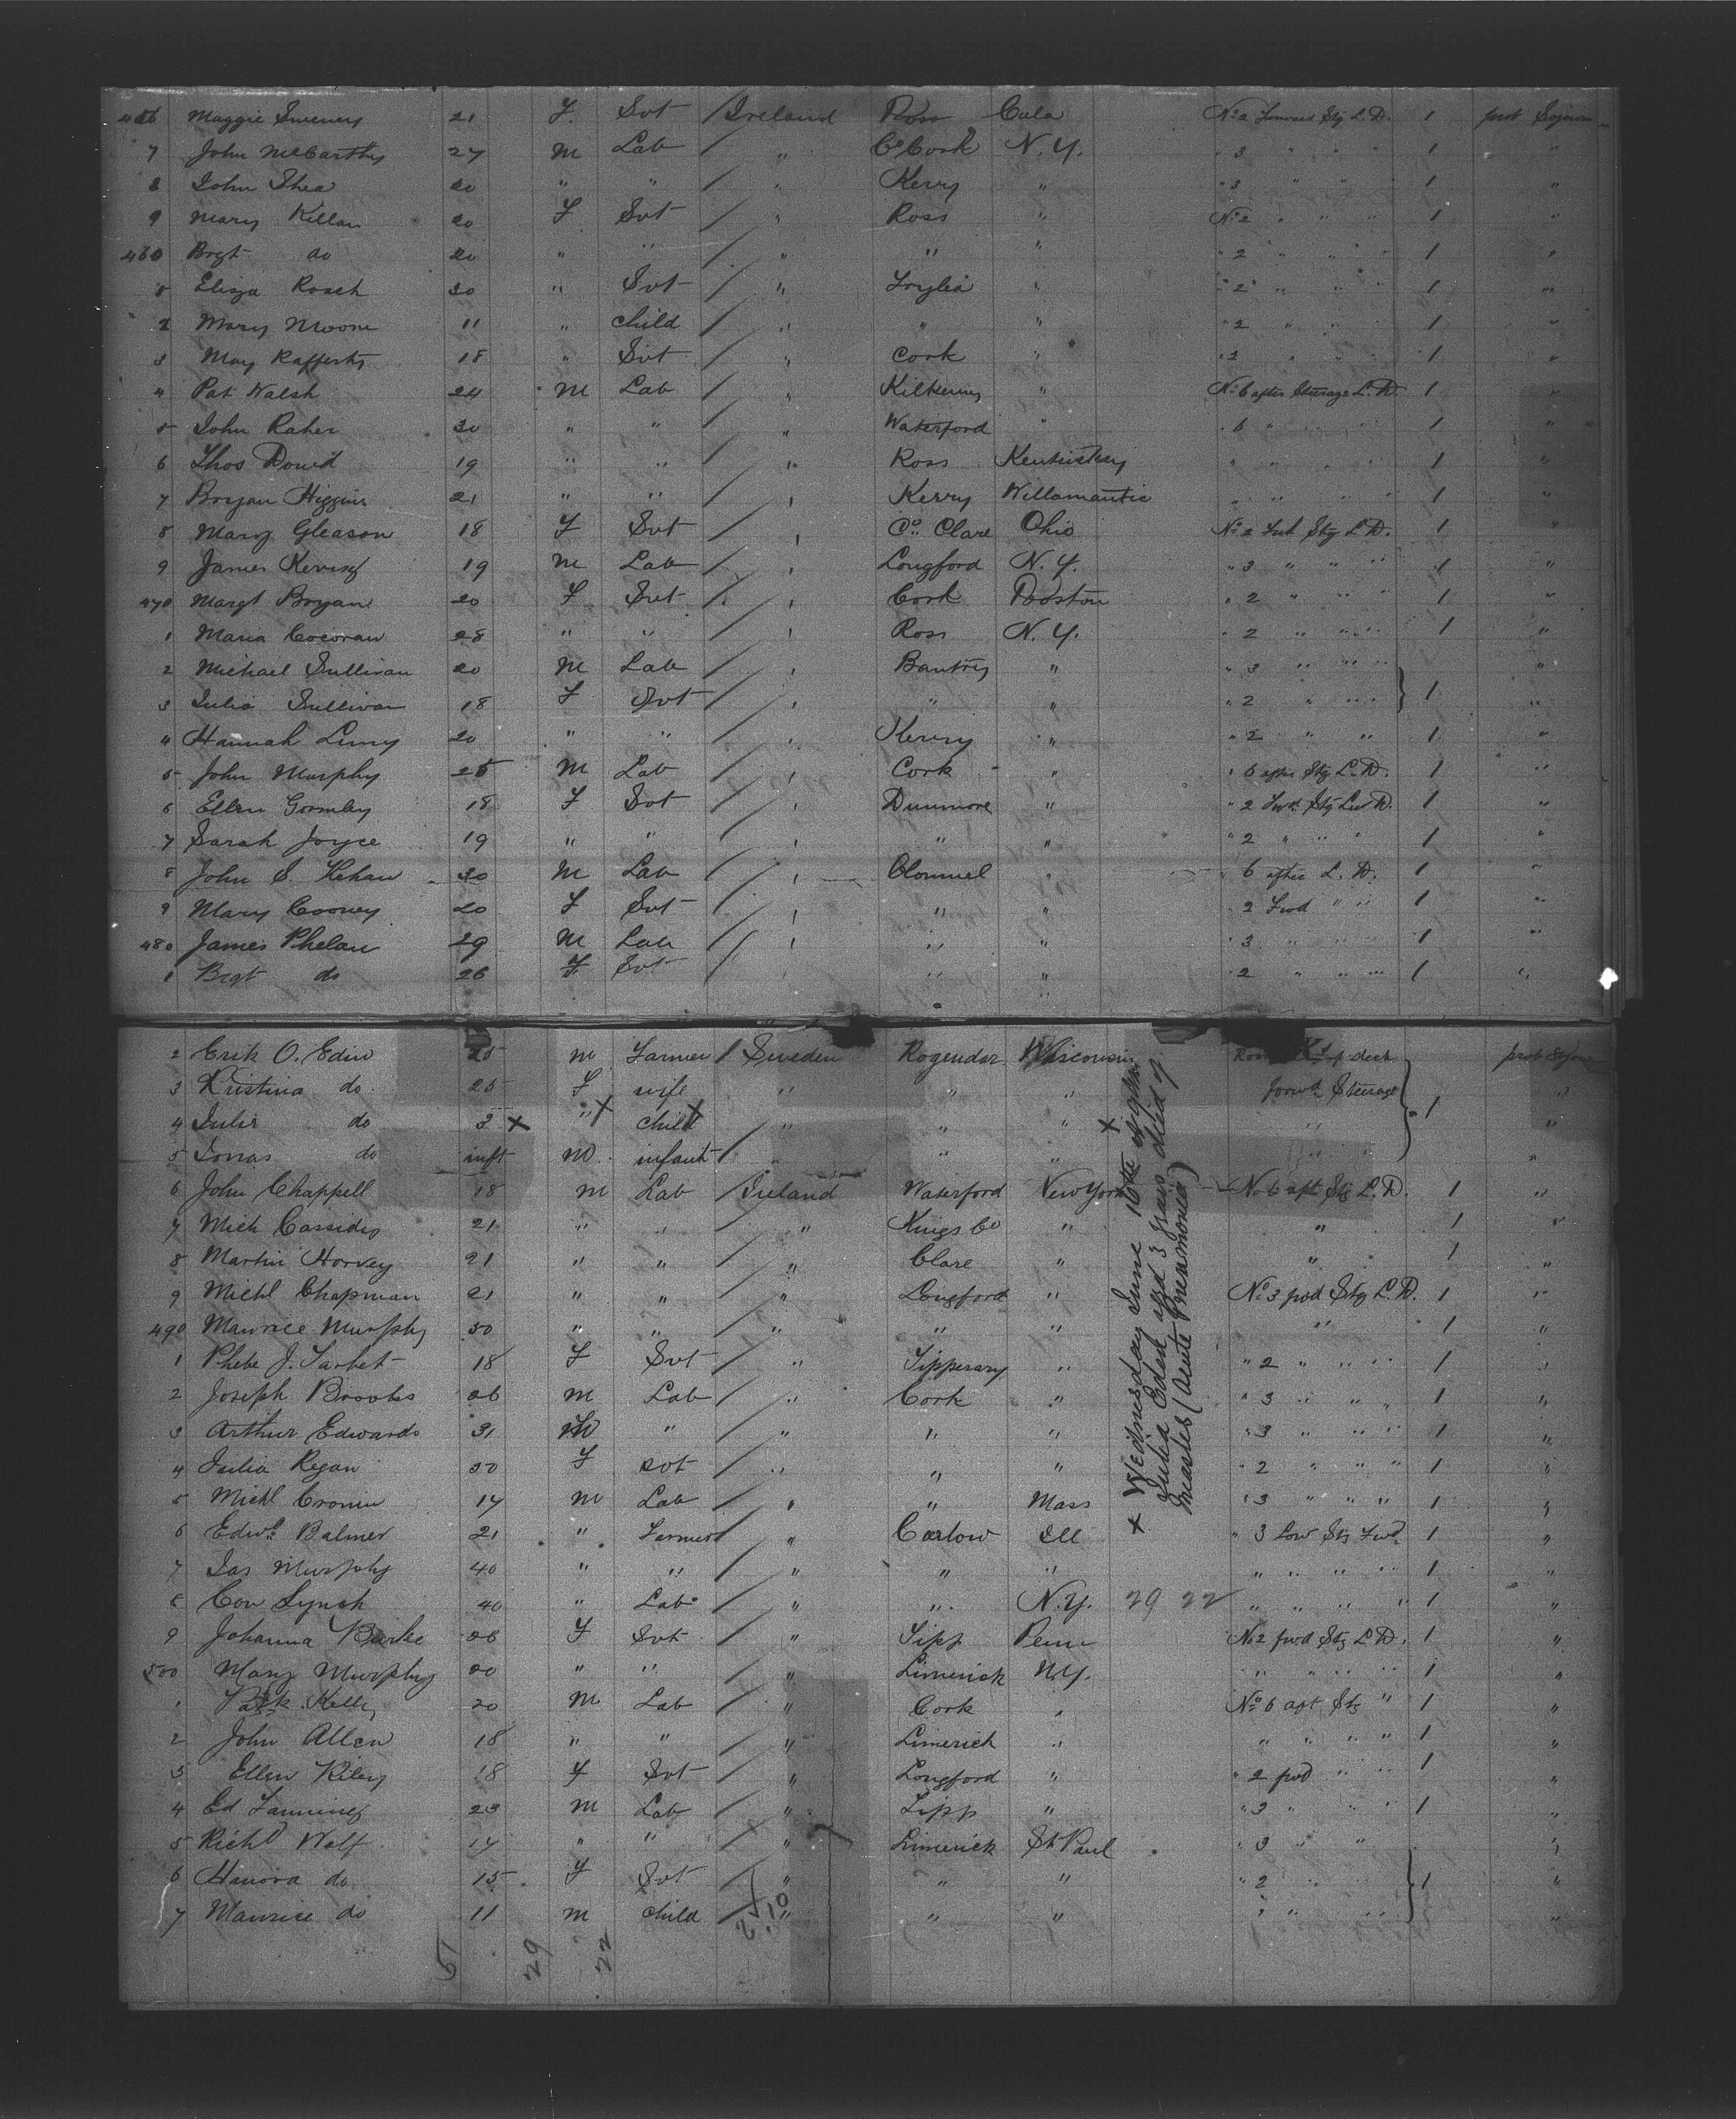 456 Maggie Sweeney 21 F. Svt / Ireland Ross Cala No 2 Forward Stg L.D. 1 prot Sojourn
7 John McCarthy 27 M Lab / " Co Cork N.Y. " 3 " " " 1 "
8 John Shea 20 " " / " Kerry " " 3 " " " 1 "
9 Mary Killan 20 F Svt / " Ross " No 2 " " " 1 "
460 Brgt do 20 " " / " " " " 2 " " " 1 "
Eliza Roach 30 " Svt / " " " 2 " " " 1 "
2 Mary Moore 11 " child / " " " " 2 " " " 1 "
3 May Rafferty 18 " Svt / " Cork " " 2 " " " 1 "
4 Pat Walsh 24 M Lab / " Kilkenny " No 6 after Steerage L.D. 1 "
5 John Raher 30 " " / " Waterford " " 6 " " " 1 "
6 Thos Dowd 19 " " / " Ross Kentuckey " " " " 1 "
7 Bryan Higgins 21 " " / " Kerry Willamantic " " " " 1 "
8 Mary Gleason 18 F Svt / " Co. Clare Ohio No 2 Stg L.D. 1 "
9 James 19 M Lab / " Longford N.Y. " 3 " " " 1 "
470 Margt Bryan 20 F Svt / " Cork Boston " 2 " " " 1 "
1 Maria Cocoran 28 " " / " Ross N.Y. " 2 " " " 1 "
2 Michael Sullivan 20 M Lab / " Bantry " " 3 " " " "
3 Julia Sullivan 18 F Svt / " " " " 2 " " " } 1 "
4 Hannah 20 " " / " Kerry " " 2 " " 1 "
5 John Murphy 25 M Lab / " Cork " " 6 after Stg L.D. 1 "
6 Ellen Gormley 18 F Svt / " Dunmore " " 2 Fwd Stg Low D. 1 "
7 Sarah Joyce 19 " " / " " " " 2 " " " 1 "
8 John S. Kehaw 30 M Lab / " Clonmel " " 6 after L.D. 1 "
9 Mary Cooney 20 F Svt / " " " " 2 Fwd " " 1 "
480 James Phelan 29 M Lab / " " " " 3 " " " 1 "
1 Brgt do 26 F Svt / " " " " 2 " " " 1 "
2 Erik O. Edin 25 M Farmer / Sweden Rogendar Wisconsin deck prot Sojour
3 Kristina do 25 F wife " " " Forwd Steerage "
4 Julia do 3 x " x child x " " " x " } 1 "
5 Jonas do inft M. infant / " " " " "
6 John Chappell 18 M Lab / Ireland Waterford New York No 6 aft Stg L.D. 1 "
7 Mich Cassidy 21 " " / " Kings Co " " 1 "
8 Martin Harvey 21 " " / " Clare " " 1 "
9 Michl Chapman 21 " " / " Longford " No 3 fwd Stg L.D. 1 "
490 Maurice Murphy 30 " " / " " " " 1 "
1 Phebe J. Tarbet 18 F Svt / " Tipperary " " 2 " " " 1 "
2 Joseph Brooks 26 M Lab / " Cork " " 3 " " " 1 "
3 Arthur Edwards 31 M " / " " " " 3 " " " 1 "
4 Julia Regan 30 F svt / " " " " 2 " " " 1 "
5 Michl Cronin 17 M Lab / " " Mass " 3 " " " 1 "
6 Edwd Balmer 21 " Farmer / " Carlow Ill " 3 Low Stg Fwd 1 "
7 Jas Murphy 40 " " / " " " " " " " 1 "
8 Con Lynch 40 " Lab / " " N.Y. 29 22 " " " " 1 "
9 Johanna Burke 26 F Svt / " Tipp Penn No 2 fwd Stg L.D. 1 "
500 Mary Murphy 20 " " / " Limerick N.Y. " " " " 1 "
1 Patk Kelly 20 M Lab / " Cork " No 6 aft Stg " 1 "
2 John Allen 18 " " / " Limerick " " " " " 1 "
3 Ellen Riley 18 F Svt / " Longford " " 2 fwd " " 1 "
4 Ed Fanning 23 M Lab / " Tipp " " 3 " " " 1 "
5 Richd Wolf 17 " " / " Limerick St Paul " 3 " " "
6 Hanora do 15 F Svt / " " " " 2 " " } 1 "
7 Maurice do 11 M child / " " " " " " " "
51 29 22
x Wednesday June 16th
Julia Eden aged 3 years died of
measles (acute Pneumonia)